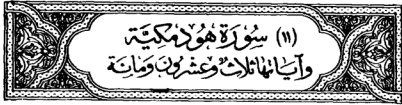 (١١) سُورَة هُود مَكيَّة
وَآيَاتهَا ثلاث وَعشرُون وَمائة